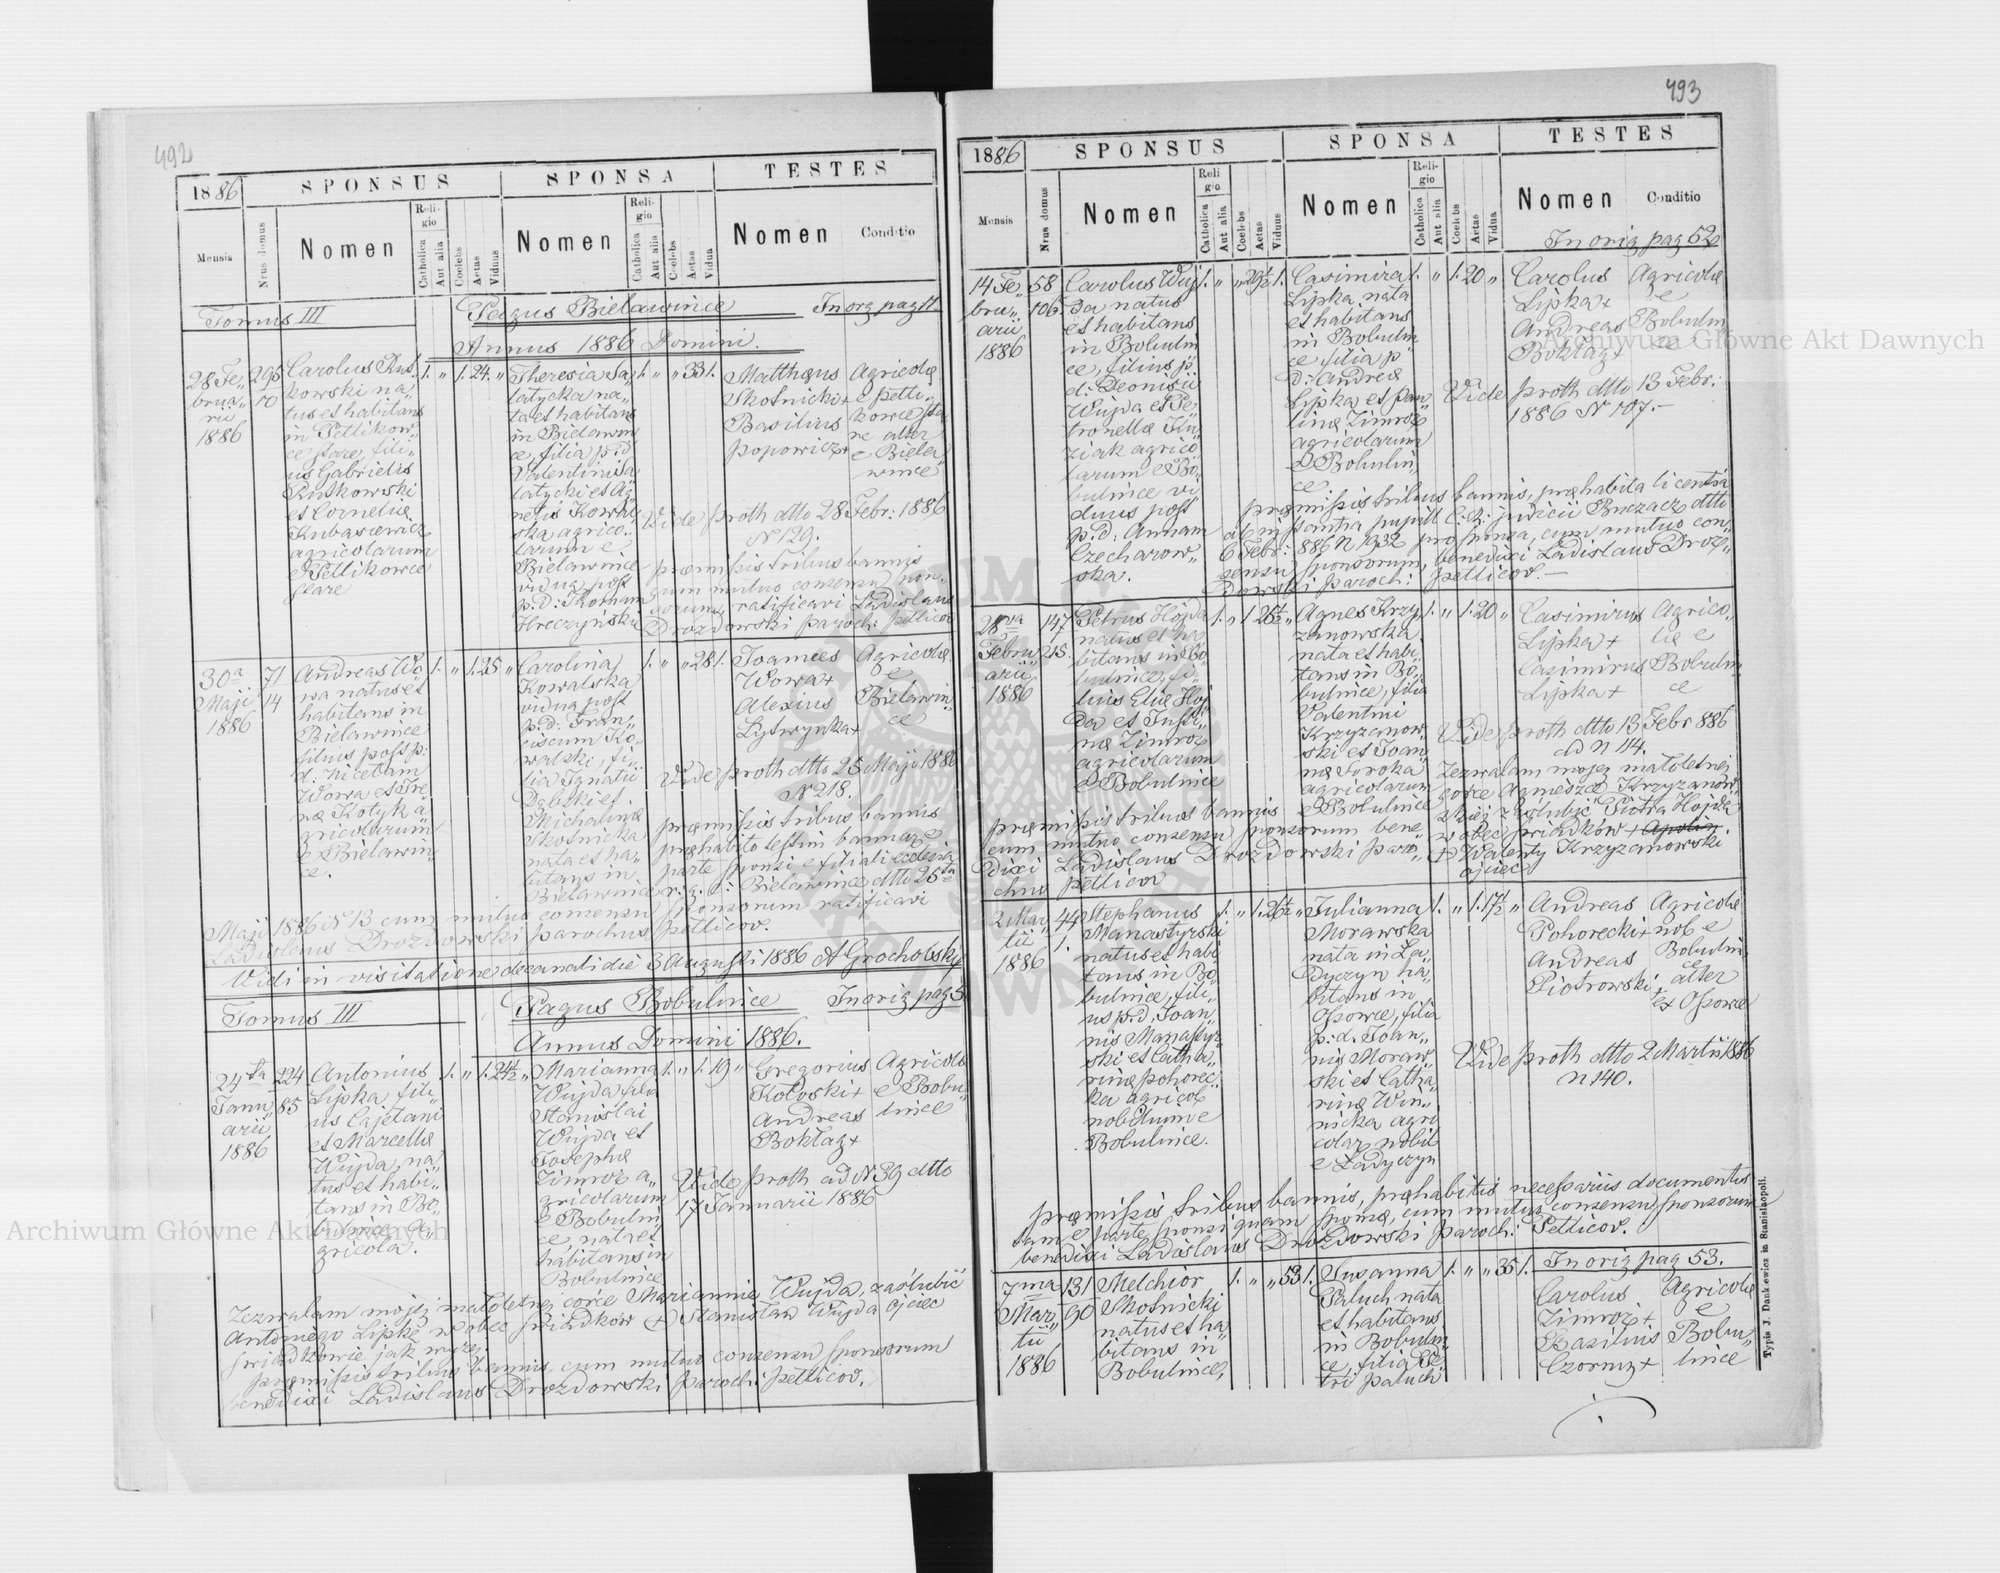 492
1886
SPONSUS
SPONSA
TESTES
Mensis
Nrus domus
Nomen
Religio
Catholica
Aut alia
Coelebs
Aetas
Viduus
Nomen
Religio
Catholica
Aut alia
Coelebs
Aetas
Vidua
Nomen
Conditio
Tomus III
Pagus Bielawince
In org pag 11
Annus 1886 Domini.
28 Fe„
brua„
rii
1886
Carolus Rut„
kowski na„
tus et habitans
in Petlikow„
ce stare, fili„
us Gabrielis
Rutkowski
et Corneliæ
Kubasiewicz
agricolarum
e Petlikowce
stare
1. „ 1. 24. „
Theresia Sa„
latycka na„
ta et habitans
in Bielawin
ce, filia p. d.
Valentini Sa„
latycki et Ag„
netis Kowal„
ska agrico„
larum e
Bielawince
vidua post
p. d: Romanum
Hreczyński
1. „ „ 33 1.
Matthæus
Skotnicki+
Basilius
Popowicz+
Agricolæ
e Petli„
kowce sta„
re alter
e Biela„
wince
Vide proth dtto 28 Febr: 1886
N 129.
præmissis tribus bannis
cum mutuo consensu spon„
sorum, ratificavi Ladislaus
Drozdowski paroch: Petlicov
30a
Maji
1886
71
14
Andreas Wo„
wa natus et
habitans in
Bielawince
filius post p:
d: Nicetam
Wowa et Ire„
næ Kotyk a„
gricolarum
e Bielawin„
ce.
1. „ 1. 25 „
Carolina
Kowalska
vidua post
p: d: Fran„
ciscum Ko„
walski, fi„
lia Ignatii
Dąbski et
Michalinæ
Skotnicka
nata et ha„
bitans in
Bielawince
1. „ „ 28 1.
Joannes
Wowa+
Alexius
Lytwynka+
Agricolæ
e
Bielawin„
ce
Vide proth dtto 25 Maji 1886
N 218.
præmissis tribus bannis
præhabito testim bann ex
parte sponsi e filiali ecclesia
r. g. c. Bielawince dtto 25ta
Maji 1886 N 13 cum mutuo consensu sponsorum ratificavi
Ladislaus Drozdowski parochus Petlicov.
Vidi in visitatione decanali die 3 Augusti 1886 A Grocholsky
Tomus III
Pagus Bobulince
In orig pag 5
Annus Domini 1886.
24ta
Janu„
arii
1886
224
85
Antonius
Lipka fili„
us Cajetani
et Marcellæ
Wujda, na„
tus et habi„
tans in Bo„
bulince a„
gricola.
1. „ 1. 24½ „
Marianna
Wujda filia
Stanislai
Wujda et
Josephæ
Zimroz a„
gricolarum
e Bobulin„
ce, nata et
habitans in
Bobulince
1. „ 1. 19 „
Gregorius
Kotoski+
Andreas
Boktaz+
Agricolæ
e Bobu„
lince
Vide proth ad N 39 dtto
17 Januarii 1886
Zezwalam mojej małoletnej córce Mariannie Wujda, zaślubić
Antoniego Lipkę w obec świadków (+) Stanisław Wujda ojciec
świadkowie jak wyżej
præmissis tribus bannis cum mutuo consensu sponsorum
benedixi Ladislaus Drozdowski paroch: Petlicov.
493
1886
SPONSUS
SPONSA
TESTES
Mensis
Nrus domus
Nomen
Religio
Catholica
Aut alia
Coelebs
Aetas
Viduus
Nomen
Religio
Catholica
Aut alia
Coelebs
Aetas
Vidua
Nomen
Conditio
In orig pag 52
14 Fe„
bru„
arii
1886
58
106.
Carolus Wuj„
da natus
et habitans
in Bobulin
ce, filius p.
d: Deonisii
Wujda et Pe„
tronellæ Ku„
ziak agrico„
larum e Bo„
bulince vi„
duus post
p: d: Annam
Czecharow„
ska.
1. „ „ 29½ 1.
Casimira
Lipka nata
et habitans
in Bobulin
ce, filia p.
d: Andreæ
Lipka et Pau„
linæ Zimroz
agricolarum
e Bobulin„
ce
1. „ 1. 20 „
Carolus
Lipka+
Andreas
Boktaz+
Agricolæ
e
Bobulin„
ce
Vide proth dtto 13 Febr:
1886 N 107.—
præmissis tribus bannis, præhabita licentia
ab instantia pupill C. R. judicii Buczacz dtto
6 Febr: 886 N 1932 pro sponsa, cum mutuo con„
sensu sponsorum, benedixi Ladislaus Droz„
dowski paroch: Petlicov.—
28va
Febru„
arii
1886
147
215.
Petrus Hojda
natus et ha„
bitans in Bo„
bulince, fi„
lius Eliæ Hoj„
da et Justi„
næ Zimroz
agricolarum
e Bobulince
1. „ 1 26½ „
Agnes Krzy„
zanowska
nata et habi„
tans in Bo„
bulince, filia
Valentini
Krzyzanow„
ski et Joan„
næ Soroka
agricolarum
e Bobulince
1. „ 1. 20 „
Casimirus
Lipka+
Casimirus
Lipka+
Agrico„
læ e
Bobulin„
ce
Vide proth dtto 13 Febr 886
ad n 114.
Zezwalam mojej małoletnej
córce Agnieszce Krzyzanow„
skiej zaślubić Piotra Hojda
w obec świadków
+ Walenty Krzyzanowski
ojciec
præmissis tribus bannis
cum mutuo consensu sponsorum bene„
dixi Ladislaus Drozdowski paro„
chus Petlicov
2 Mar„
tii
1886
44
1.
Stephanus
Manastyrski
natus et habi„
tans in Bo„
bulince, fili„
us p. d. Joan„
nis Manastyr„
ski et Catha„
rinæ Pohorec„
ka agricol
nobilium e
Bobulince.
1. „ 1. 26½ „
Julianna
Morawska
nata in La„
dyczyn ha„
bitans in
Ossowce, filia
p: d. Joan„
nis Moraw„
ski et Catha„
rinæ Win„
nicka agri
colar nobil
e Ladyczyn
1. „ 1. 17½ „
Andreas
Pohorecki+
Andreas
Piotrowski+
Agricolæ
nob e
Bobulin„
ce
alter
ex Ossowce
Vide proth dtto 2 Martii 1886
n 140.
præmissis tribus bannis, præhabitis necessariis documentis
tam e parte sponsi quam sponsæ, cum mutuo consensu sponsorum
benedixi Ladislaus Drozdowski paroch: Petlicov.
In orig pag 53.
7ma
Mar„
tii
1886
131
90
Melchior
Skotnicki
natus et ha„
bitans in
Bobulince,
1. „ „ 53 1.
Susanna
Paluch nata
et habitans
in Bobulin„
ce, filia Pe„
tri Paluch
1. „ „ 35 1.
Carolus
Zimroz+
Basilius
Czornyz+
Agricolæ
e
Bobu„
lince
Typis J. Dankewicz in Stanislaopoli.
Archiwum Główne Akt Dawnych
Archiwum Główne Akt Dawnych